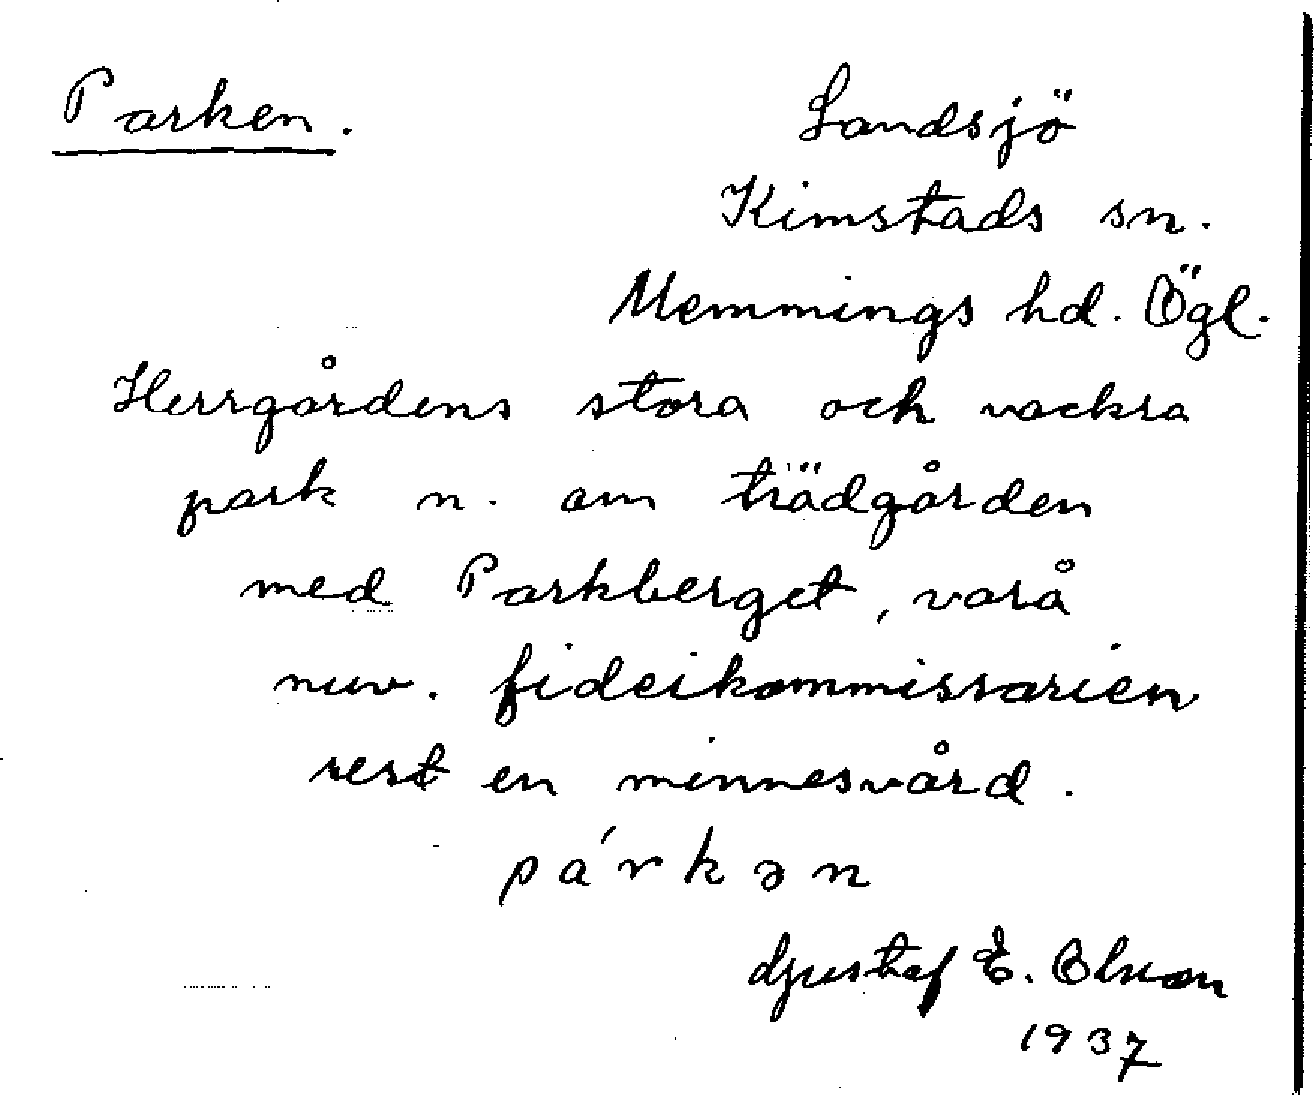 Parken.
Landsjö
Kimstads sn.
Memmings hd. Ögl.
Herrgårdens stora och vackra
park n. om trädgården
med Parkberget, varå
nuv. fideikommissarien
rest en minnesvård.
párkən
Gustaf E. Olsson
1937